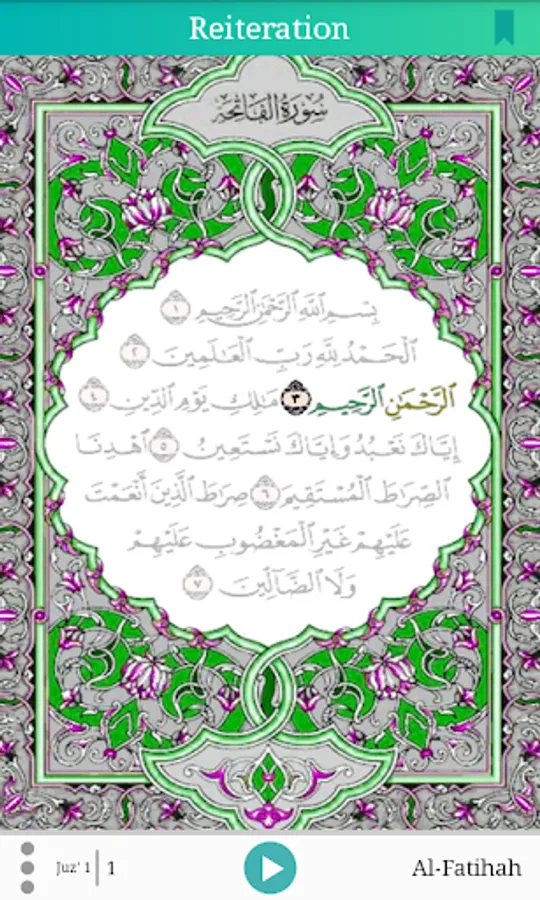 Reiteration
سُورَةُ الفَاتِحَة
بِسْمِ ٱللَّهِ ٱلرَّحْمَٰنِ ٱلرَّحِيمِ ١
ٱلْحَمْدُ لِلَّهِ رَبِّ ٱلْعَٰلَمِينَ ٢
ٱلرَّحْمَٰنِ ٱلرَّحِيمِ ٣ مَٰلِكِ يَوْمِ ٱلدِّينِ ٤
إِيَّاكَ نَعْبُدُ وَإِيَّاكَ نَسْتَعِينُ ٥ ٱهْدِنَا
ٱلصِّرَٰطَ ٱلْمُسْتَقِيمَ ٦ صِرَٰطَ ٱلَّذِينَ أَنْعَمْتَ
عَلَيْهِمْ غَيْرِ ٱلْمَغْضُوبِ عَلَيْهِمْ
وَلَا ٱلضَّآلِّينَ ٧
Juz' 1 | 1
Al-Fatihah